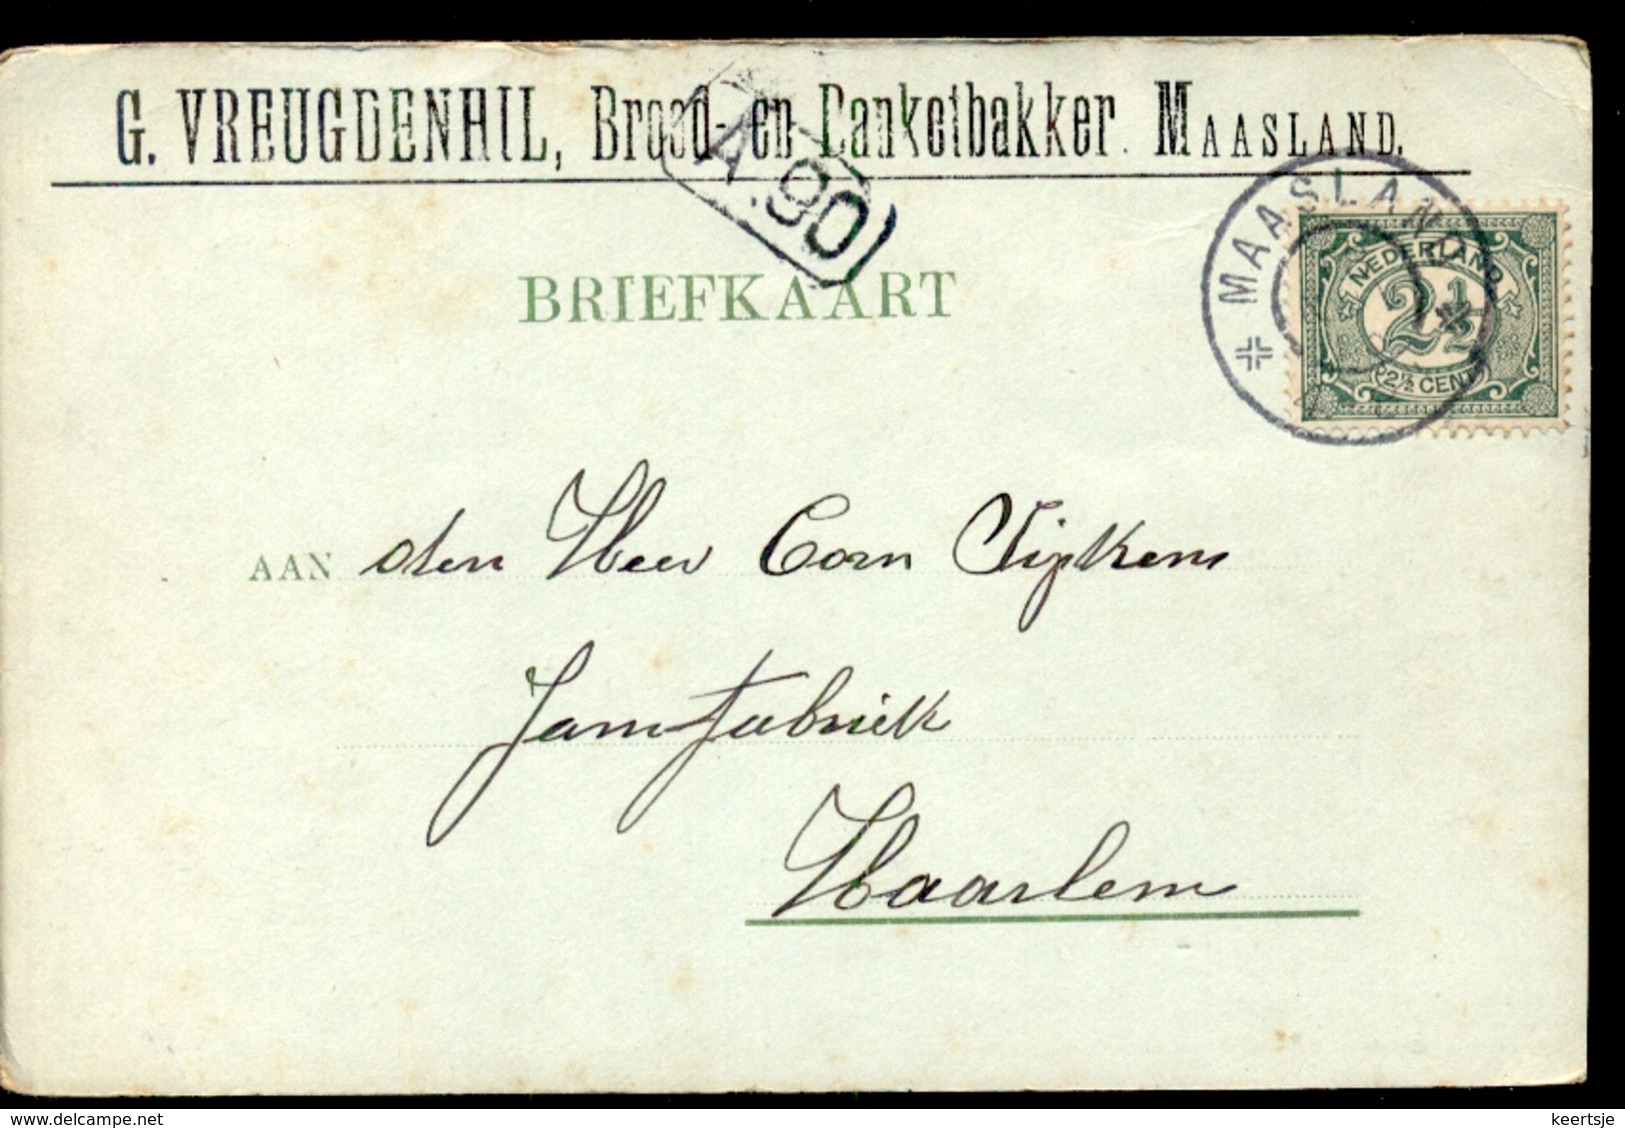 G. VREUGDENHIL, Brood- en Banketbakker. MAASLAND.
A.90
MAASLAND
NEDERLAND
2½
2½ CENT
BRIEFKAART
AAN den Heer Corn Tijtkens
Jamfabriek
Haarlem
www.delcampe.net
keertsje